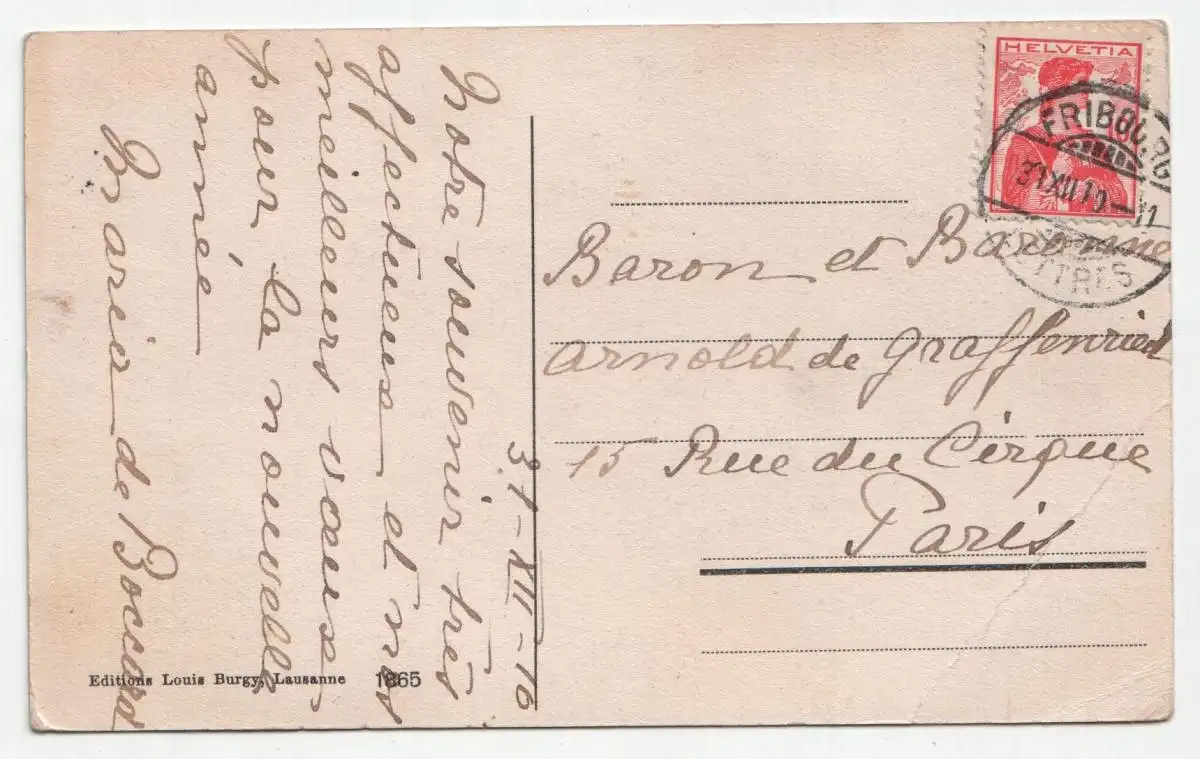 31-XII-10
Notre souvenir très
affectueux et nos
meilleurs vœux
pour la nouvelle
année
Maria de Boccard
Editions Louis Burgy, Lausanne 1865
HELVETIA
FRIBOURG
31.XII.10-11
LETTRES
Baron et Baronne
Arnold de Graffenried
15 Rue du Cirque
Paris